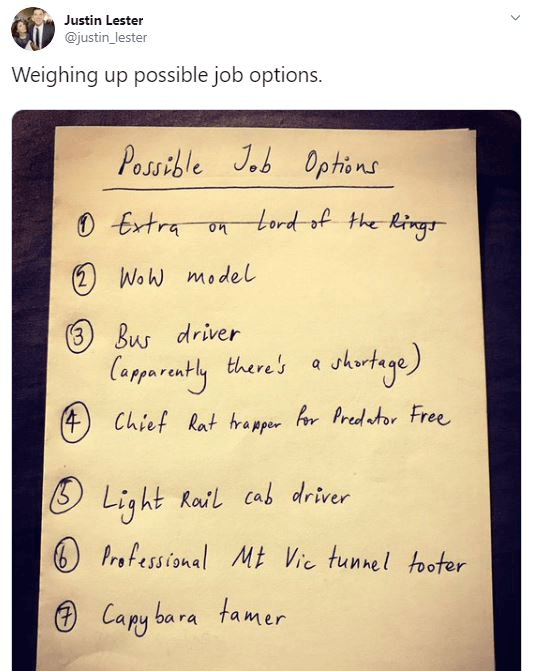 Justin Lester
@justin_lester
Weighing up possible job options.
Possible Job Options
① Extra on Lord of the Rings
② WoW model
③ Bus driver
(apparently there's a shortage)
④ Chief Rat trapper for Predator Free
⑤ Light Rail cab driver
⑥ Professional Mt Vic tunnel tooter
⑦ Capybara tamer